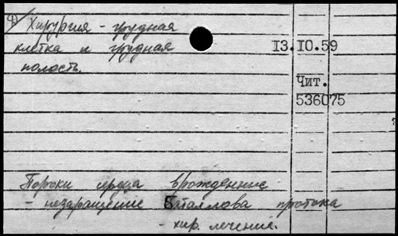 Ф/ Хирургия - грудная
клетка и грудная
полость.
13.10.59
Чит.
536075
Пороки сердца врожденные
- незаращение Боталлова протока
- хир. лечение.